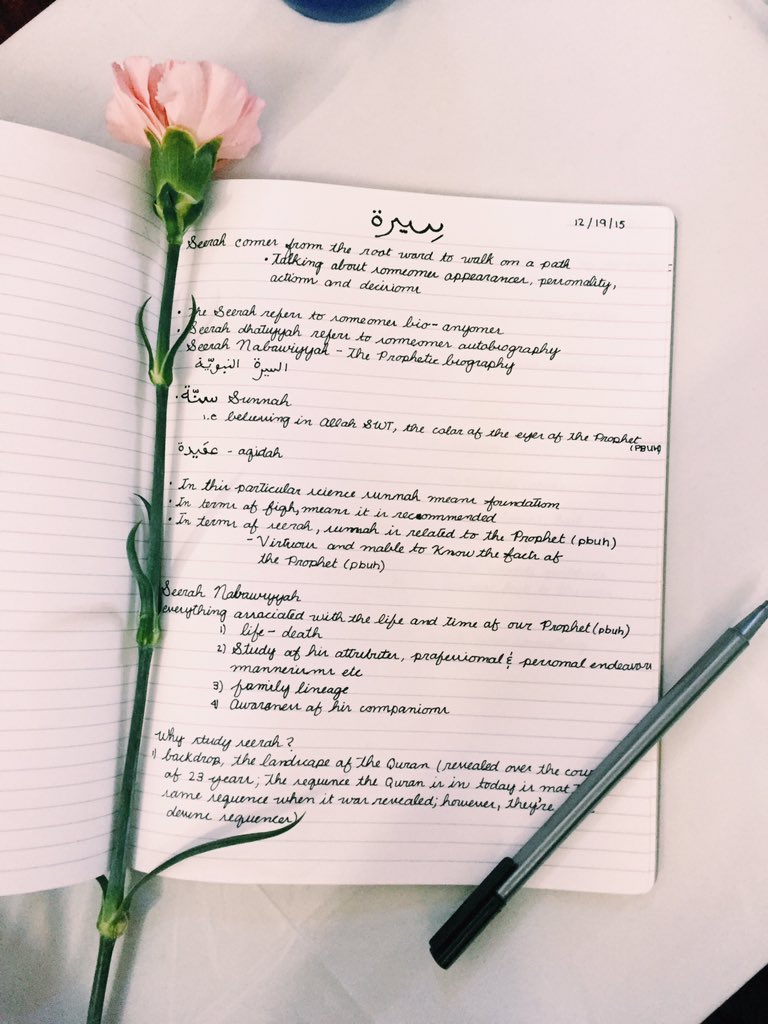 سِيرة
12/19/15
Seerah comes from the root word to walk on a path
• Talking about someones appearances, personality,
actions and decisions
• The Seerah refers to someones bio-anyones
• Seerah dhatiyyah refers to someones autobiography
Seerah Nabawiyyah - The Prophetic biography
السيرة النبويّة
• سنّة Sunnah
i.e believing in Allah SWT, the color of the eyes of the Prophet
(PBUH)
عقيدة - aqidah
• In this particular science sunnah means foundations
• In terms of fiqh, means it is recommended
• In terms of seerah, sunnah is related to the Prophet (pbuh)
- Virtuous and noble to know the facts of
the Prophet (pbuh)
Seerah Nabawiyyah
everything associated with the life and time of our Prophet (pbuh)
1) life - death
2) Study of his attributes, professional & personal endeavors
mannerisms etc
3) family lineage
4) Awareness of his companions
Why study seerah?
1) backdrop, the landscape of the Quran (revealed over the
of 23 years; the sequence the Quran is in today is not
same sequence when it was revealed; however, they're
devine sequences)